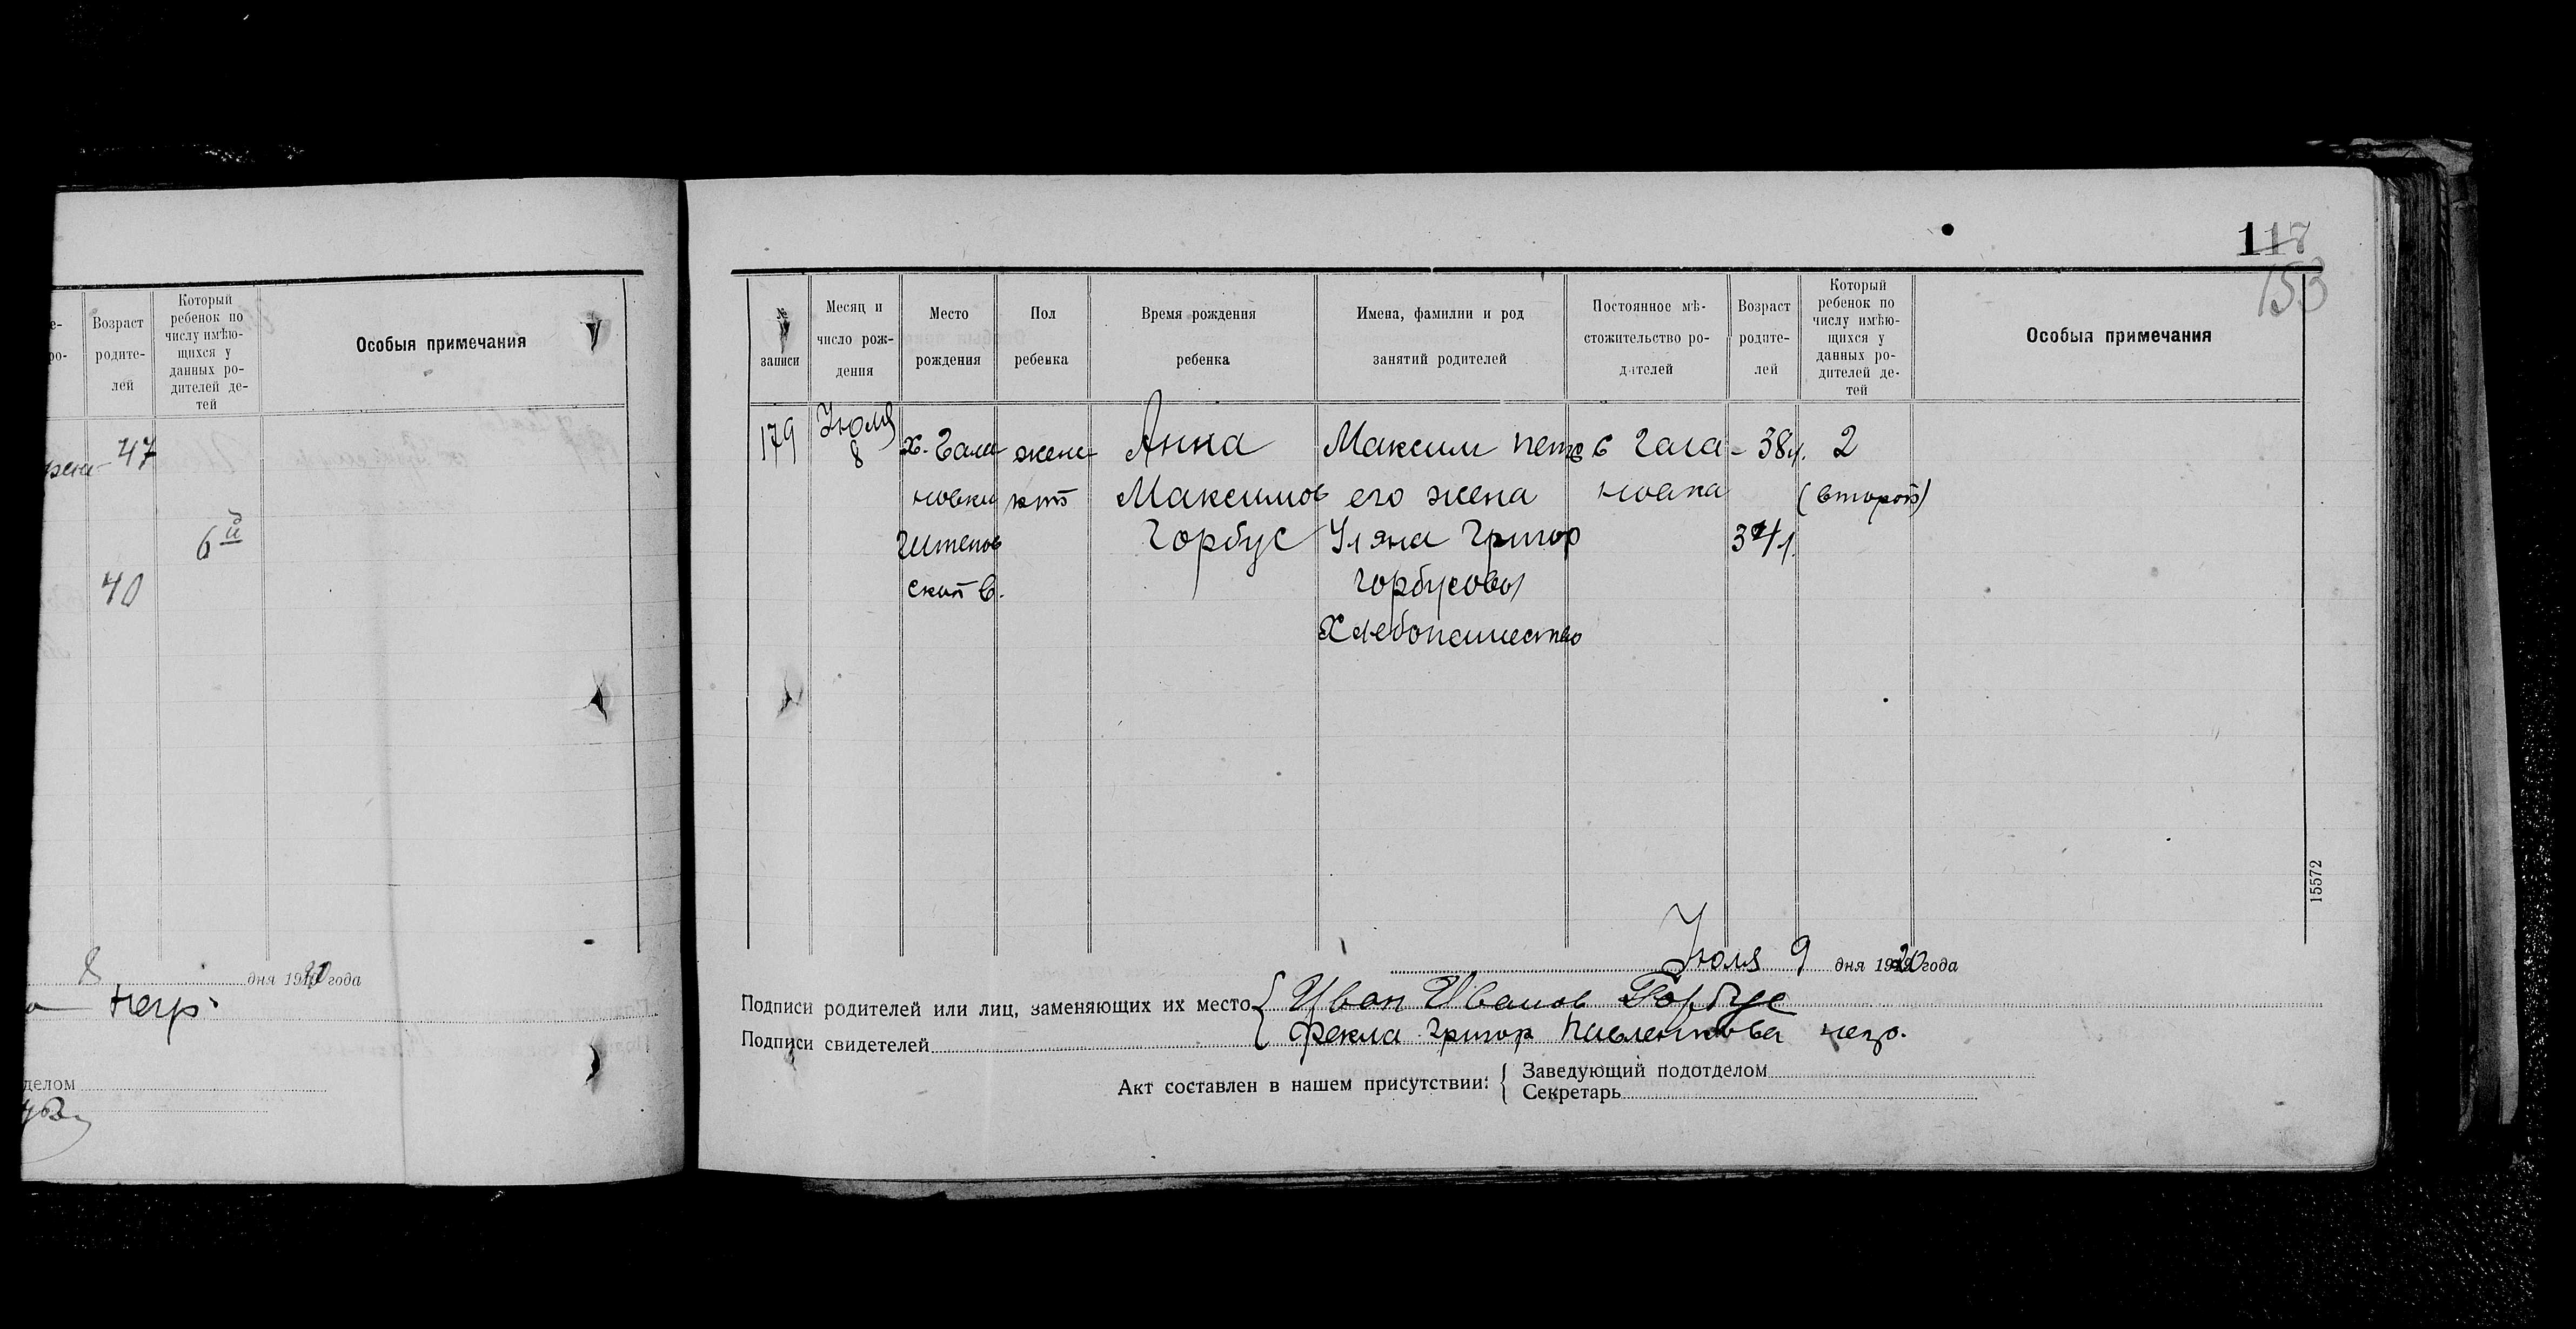 Возраст родите- лей
Который ребенок по числу имѣю- щихся у данных ро- дителей де- тей
Особыя примечания
47
6й
40
8 дня 1920 года
негр.
делом
117
153
№ записи
Месяц и число рож- дения
Место рождения
Пол ребенка
Время рождения ребенка
Имена, фамилии и род занятий родителей
Постоянное мѣ- стожительство ро- дителей
Возраст родите- лей
Который ребенок по числу имѣю- щихся у данных ро- дителей де- тей
Особыя примечания
179 Июля 8 х. Гала- женс- Анна Максим Петров Гала- 38л. 2
новки кой Максимов его жена новка (второй)
Горбус Уляна Григор 34л.
ской в. Горбусовы
Хлебопашество
15572
Июля 9 дня 1920 года
Подписи родителей или лиц, заменяющих их место { Иван Иванов Горбус
Подписи свидетелей Фекла Григор Павленкова негр.
Акт составлен в нашем присутствии: { Заведующий подотделом
Секретарь